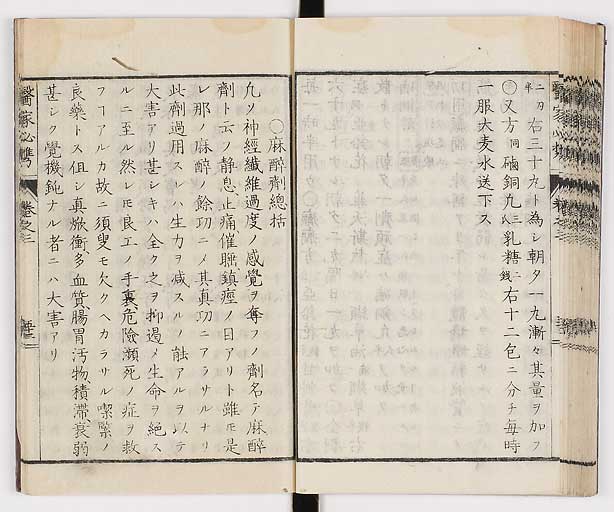 二刀右三十九ト為シ朝夕一九漸々其量ヲ加フ
又方同硇銅九三氏乳糖二錢右十二包ニ分チ毎時
一服大麦水送下ス
〇麻醉劑總括
凢ソ神經纎維過度ノ感覺ヲ奪フノ劑名テ麻醉
劑ト云ノ静息止痛催聰鎮痙ノ目アリト雖モ是
レ那ノ麻醉ノ餘功ニメ其真功ニアラサルナリ
此劑過用スハ生力ヲ减スルノ能アルヲ以テ
大害アリ甚シキハ全ク之ヲ抑遏メ生命ヲ絶ス
ルニ至ル然レモ良工ノ手裏危險瀕死ノ症ヲ救
フヿアルカ故ニ須臾モ欠クヘカラサル喫緊ノ
良藥トス但シ真焮衝多血質腸胃汚物積滞衰弱
甚シク覺機鈍ナル者ニハ大害アリ
醫家必携
卷之三